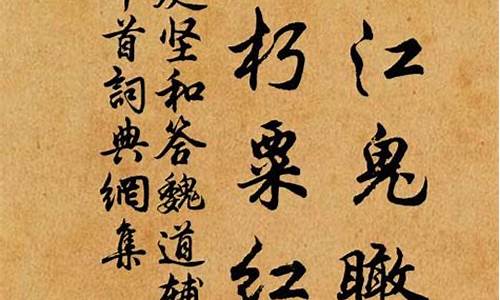 江鬼瞰
朽粟红
庭坚和答魏道辅
十首詞典網集